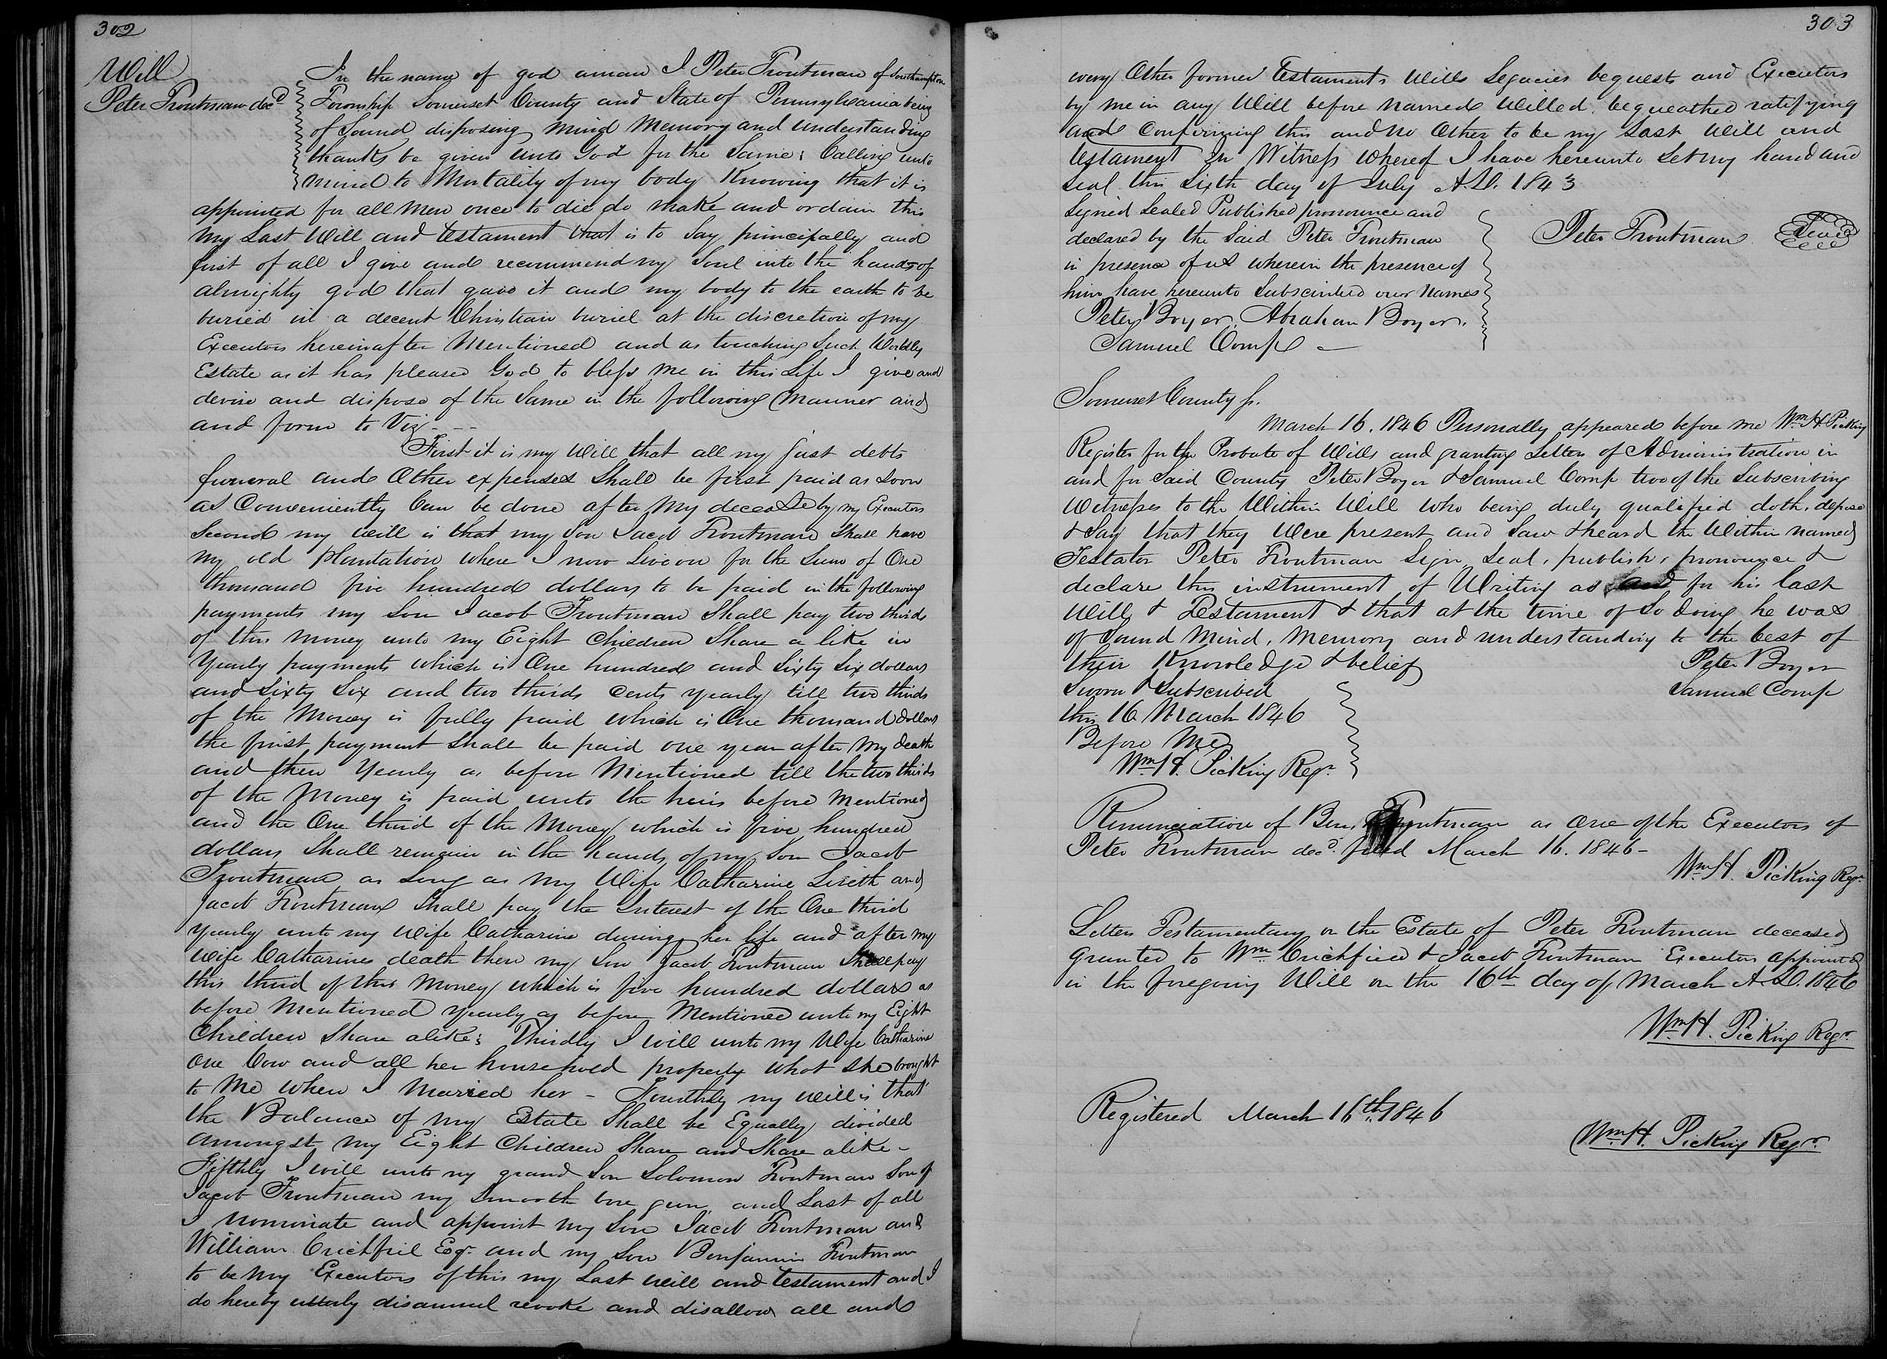 302
Will
Peter Troutman decd
In the name of god aman I Peter Troutman of Southampton
Township Somerset County and State of Pennsylvania being
of Sound disposing mind Memory and understanding
thanks be given unto God for the Same; Calling unto
mind to Mortality of my body Knowing that it is
appointed for all Men once to die do make and ordain this
my Last Will and testament that is to Say principally and
first of all I give and recommend my Soul into the hands of
almighty god that gave it and my body to the earth to be
buried in a decent Christian buriel at the discretion of my
Executors hereinafter Mentioned and as touching Such Worldly
Estate as it has pleased God to bless me in this Life I give and
devise and dispose of the Same in the following Manner and
and form to Viz - - -
First it is my Will that all my just debts
funeral and Other expenses Shall be first paid as Soon
as Conveniently Can be done after My decease by my Executors
Second my will is that my Son Jacob Troutman Shall have
my old plantation where I now Live on for the Sum of One
thousand five hundred dollars to be paid in the following
payments my Son Jacob Troutman Shall pay two thirds
of this money unto my Eight Children Share a like in
Yearly payments which is One hundred and Sixty Six dollars
and Sixty Six and two thirds Cents yearly till two thirds
of the Money is fully paid which is One thousand dollars
the first payment Shall be paid one year after My death
and then Yearly as before Mentioned till the two thirds
of the Money is paid unto the heirs before Mentioned
and the One third of the Money which is five hundred
dollars Shall remain in the hands of my Son Jacob
Troutman as Long as my Wife Catharine Liveth and
Jacob Troutman Shall pay the Interest of the One third
yearly unto my Wife Catharine during her life and after my
Wife Catharines death then my Son Jacob Troutman Shall pay
this third of this Money which is five hundred dollars as
before Mentioned Yearly as before Mentioned unto my Eight
Children Share alike; Thirdly I will unto my Wife Catharine
One Cow and all her household property what She brought
to Me when I Married her - Fourthly my will is that
the Balance of my Estate Shall be Equally divided
amongst my Eight Children Share and Share alike -
Fifthly I will unto my grand Son Solomon Troutman Son of
Jacob Troutman my Smooth bore gun and Last of all
I nominate and appoint my Son Jacob Troutman and
William Crichfiel Esqr and my Son Benjamin Troutman
to be My Executors of this my Last will and testament and I
do hereby utterly disannul revoke and disallow all and
303
every Other former testaments Wills Legacies bequests and Executors
by me in any Will before named Willed bequeathed ratifying
and Confirming this and no Other to be my Last Will and
testament In Witness whereof I have hereunto Set my hand and
Seal this Sixth day of July A.D. 1843
Signed Sealed Published pronounce and
declared by the Said Peter Troutman
in presence of us wherein the presence of
him have hereunto Subscribed our Names
Peter Troutman Seal
Peter Boyer, Abraham Boyer,
Samuel Comp -
Somerset County ss.
March 16, 1846 Personally appeared before me Wm H Picking
Register for the Probate of Wills and granting Letters of Administration in
and for Said County Peter Boyer & Samuel Comp two of the Subscribing
Witnesses to the Within Will Who being duly qualified doth, depose
& Say that they Were present and Saw & heard the Within named
Testator Peter Troutman Sign, Seal, publish, pronounce &
declare this instrument of Writing as and for his last
Will & Testament & that at the time of So doing he was
of Sound Mind, Memory and understanding to the best of
their Knowledge & belief
Peter Boyer
Samuel Comp
Sworn & Subscribed
this 16 March 1846
Before Me
Wm H. Picking Regr
Renunciation of Benj Troutman as One of the Executors of
Peter Troutman decd filed March 16. 1846 -
Wm H. Picking Regr
Letters Testamentary on the Estate of Peter Troutman deceased
Granted to Wm Crichfield & Jacob Troutman Executors appointed
in the foregoing Will on the 16th day of March A.D. 1846
Wm H. Picking Regr
Registered March 16th 1846
Wm H. Picking Regr